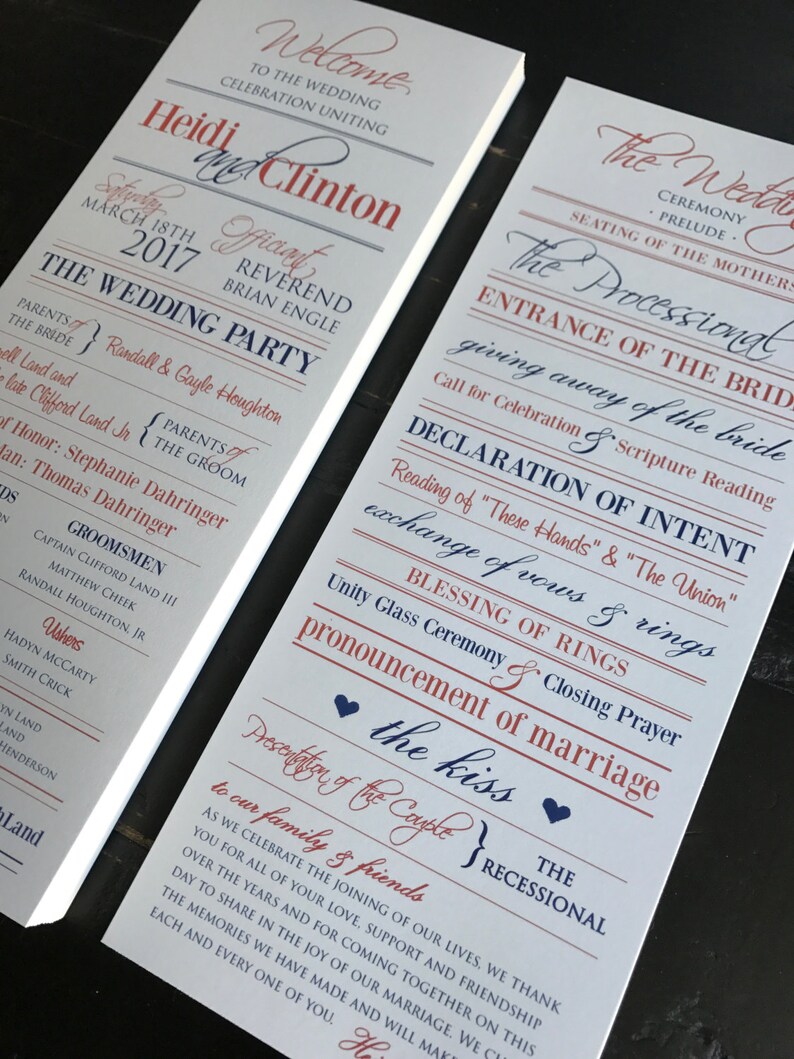 Welcome
TO THE WEDDING
CELEBRATION UNITING
Heidi
and Clinton
Saturday
MARCH 18TH
2017
Officiant
REVEREND
BRIAN ENGLE
THE WEDDING PARTY
PARENTS of
THE BRIDE } Randall & Gayle Houghton
Land and
late Clifford Land Jr { PARENTS of
THE GROOM
of Honor: Stephanie Dahringer
Man: Thomas Dahringer
GROOMSMEN
CAPTAIN CLIFFORD LAND III
MATTHEW CHEEK
RANDALL HOUGHTON, JR
Ushers
HADYN MCCARTY
SMITH CRICK
LAND
LAND
HENDERSON
Land
The Wedding
CEREMONY
· PRELUDE ·
SEATING OF THE MOTHERS
The Processional
ENTRANCE OF THE BRIDE
giving away of the bride
Call for Celebration & Scripture Reading
DECLARATION OF INTENT
Reading of "These Hands" & "The Union"
exchange of vows & rings
BLESSING OF RINGS
Unity Glass Ceremony & Closing Prayer
pronouncement of marriage
the kiss
Presentation of the Couple } THE
RECESSIONAL
to our family & friends
AS WE CELEBRATE THE JOINING OF OUR LIVES, WE THANK
YOU FOR ALL OF YOUR LOVE, SUPPORT AND FRIENDSHIP
OVER THE YEARS AND FOR COMING TOGETHER ON THIS
DAY TO SHARE IN THE JOY OF OUR MARRIAGE. WE
THE MEMORIES WE HAVE MADE AND WILL MAKE
EACH AND EVERY ONE OF YOU.